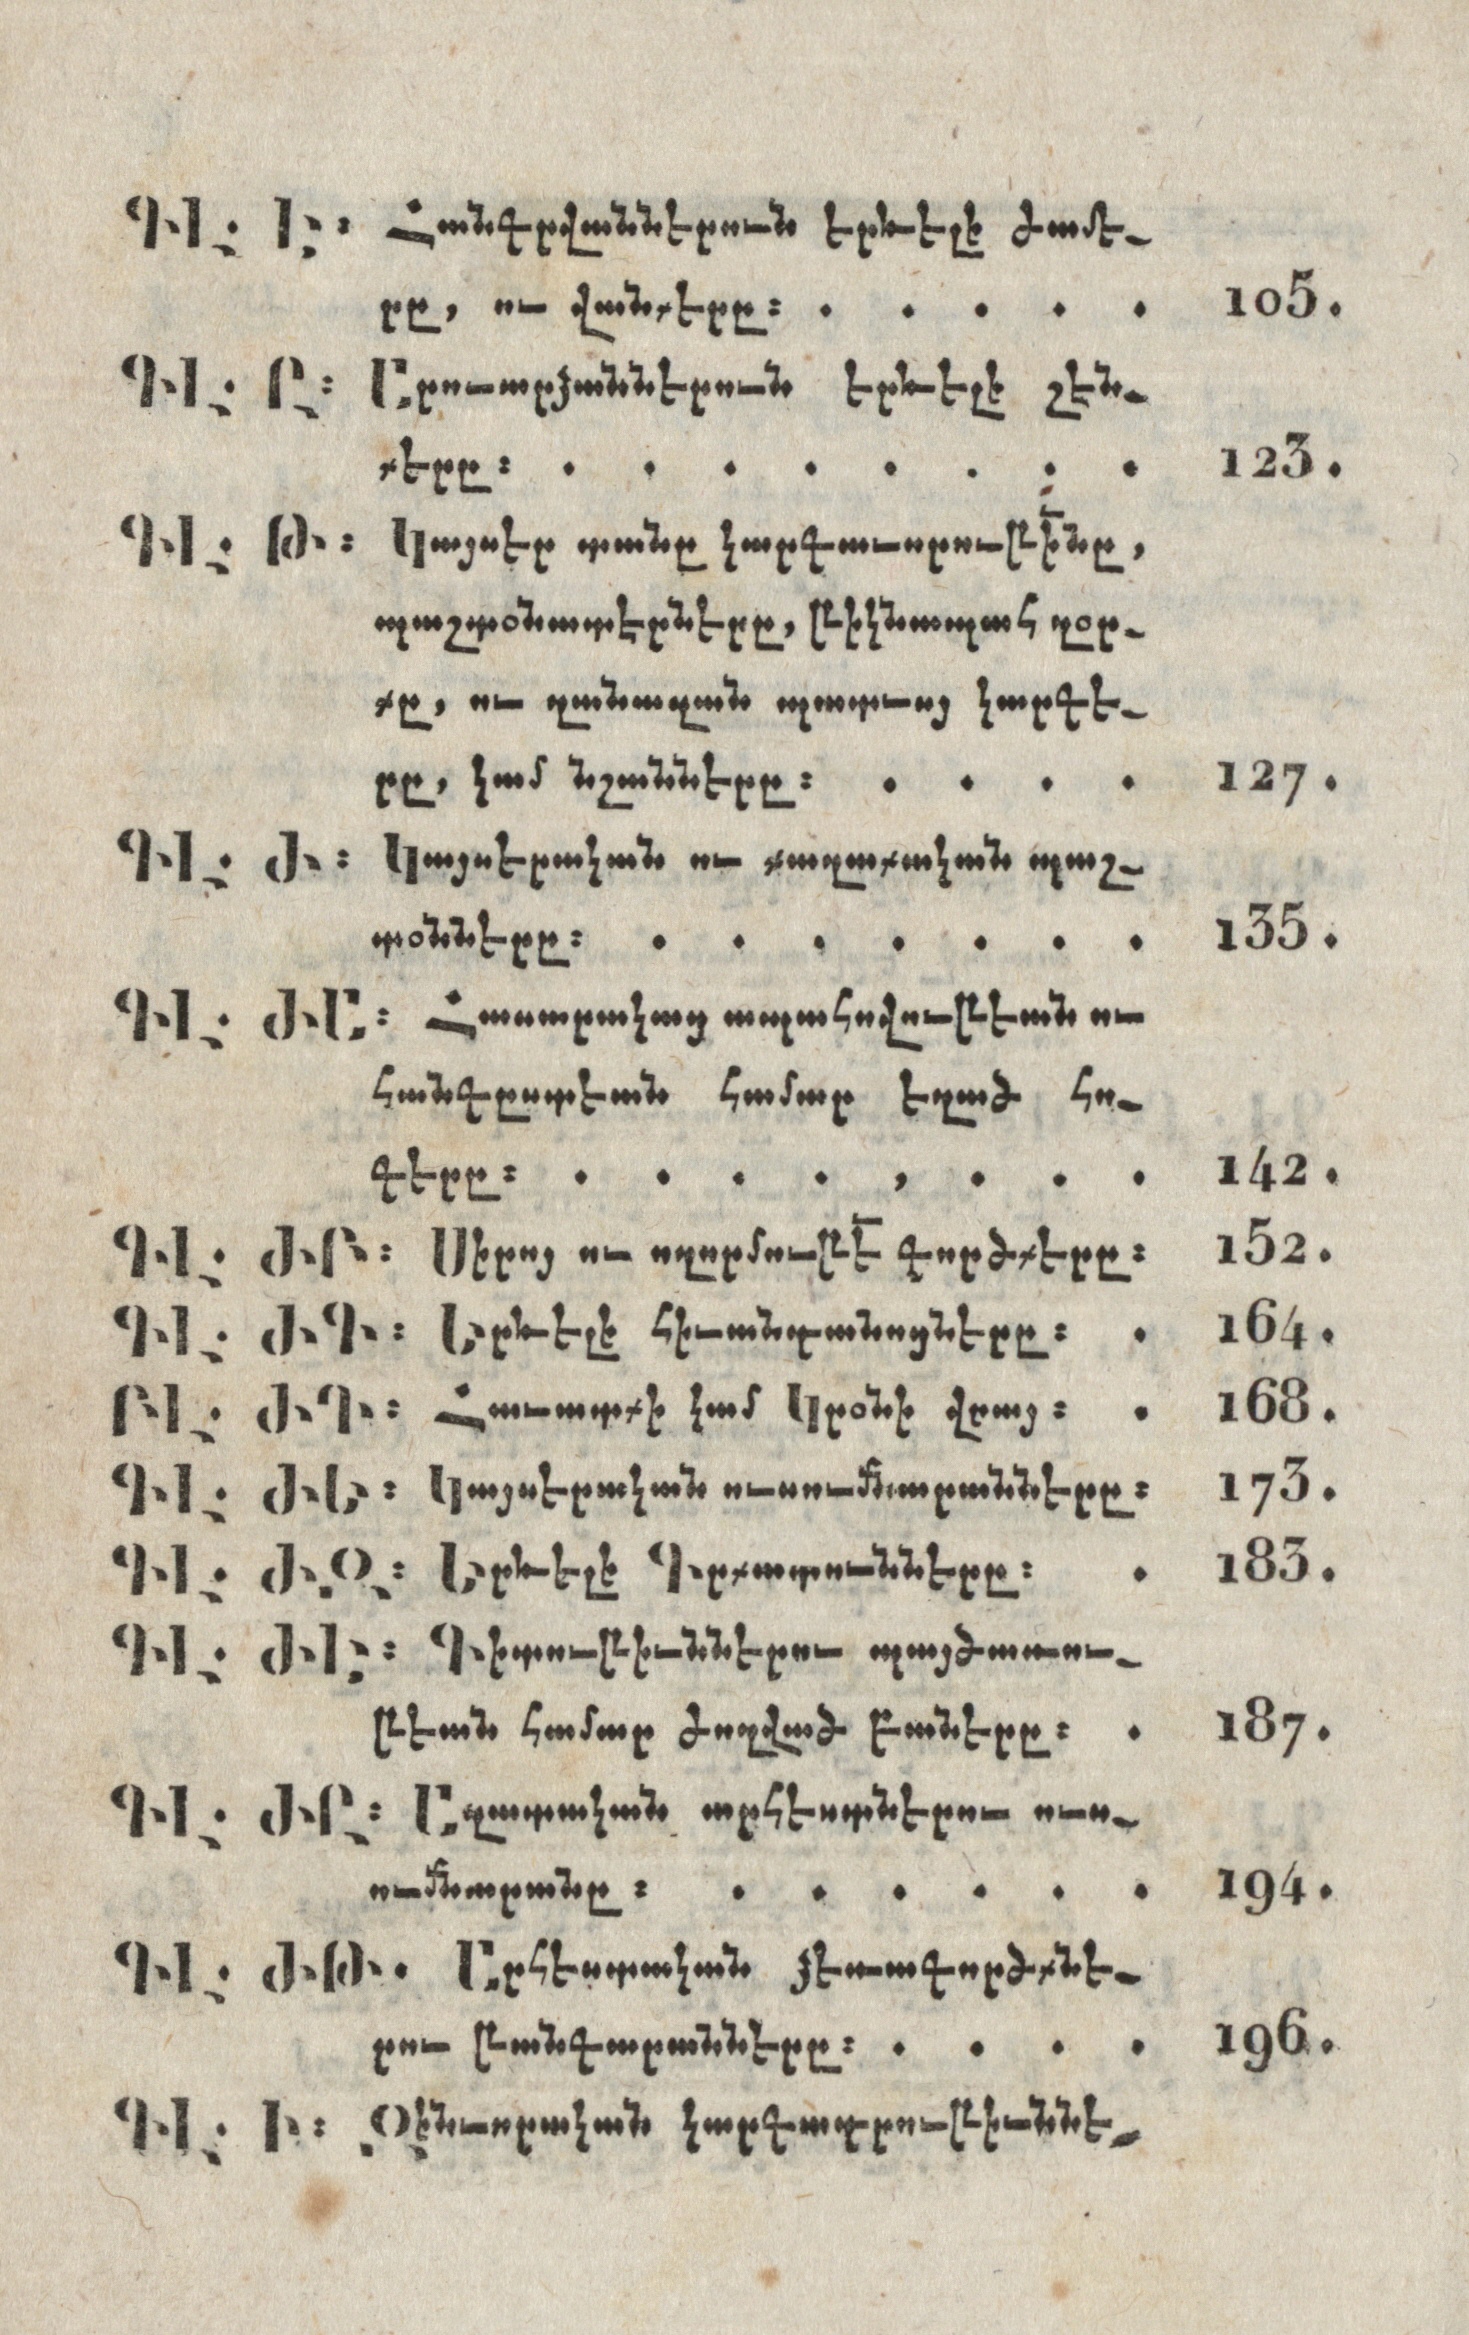 ԳԼ. Է։ Հանգրվաննէրուն էրևէլի ժամէ-
րը, ու վանքէրը։ . . . . . 105.
ԳԼ. Ը։ Արուարձաննէրուն էրևէլի շէն-
քէրը։ . . . . . . . . 123.
ԳԼ. Թ։ Կայսէր տանը կարգաւորութէնը,
պաշտօնատէրնէրը, թիկնապահ զօր-
քը, ու զանազան պատւոյ կարգէ-
րը, կամ նշաննէրը։ . . . . 127.
ԳԼ. Ժ։ Կայսէրական ու քաղաքական պաշ-
տօննէրը։ . . . . . . . 135.
ԳԼ. ԺԱ։ Հասարակաց ապահովութէան ու
հանգըստէան համար էղած հո-
գէրը։ . . . . , . . . 142.
ԳԼ. ԺԲ։ Սիրոյ ու ողորմութէ գործքէրը։ 152.
ԳԼ. ԺԳ։ Երևէլի հիւանդանոցնէրը։ . 164.
ԲԼ. ԺԴ։ Հաւատքի կամ Կրօնի վրայ։ . 168.
ԳԼ. ԺԵ։ Կայսէրական ուսումնարաննէրը։ 173.
ԳԼ. ԺԶ։ Երևէլի Գրքատուննէրը։ . 183.
ԳԼ. ԺԷ։ Գիտութիւննէրու պայծառու-
թէան համար ժողված բանէրը։ . 187.
ԳԼ. ԺԸ։ Ազատական արհէստնէրու ուս-
ումնարանը։ . . . . . . 194.
ԳԼ. ԺԹ. Արհէստական ձէռագործքնէ-
րու թանգարաննէրը։ . . . . 196.
ԳԼ. Ի։ Զինւորական կարգադրութիւննէ-